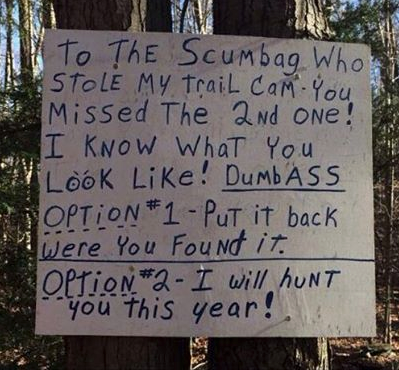 To The Scumbag Who
STOLE My Trail Cam-You
Missed The 2nd one!
I Know What You
Look Like! DumbASS
OPTION #1 - Put it back
Were You Found it.
OPTION #2 - I will hunt
you this year!